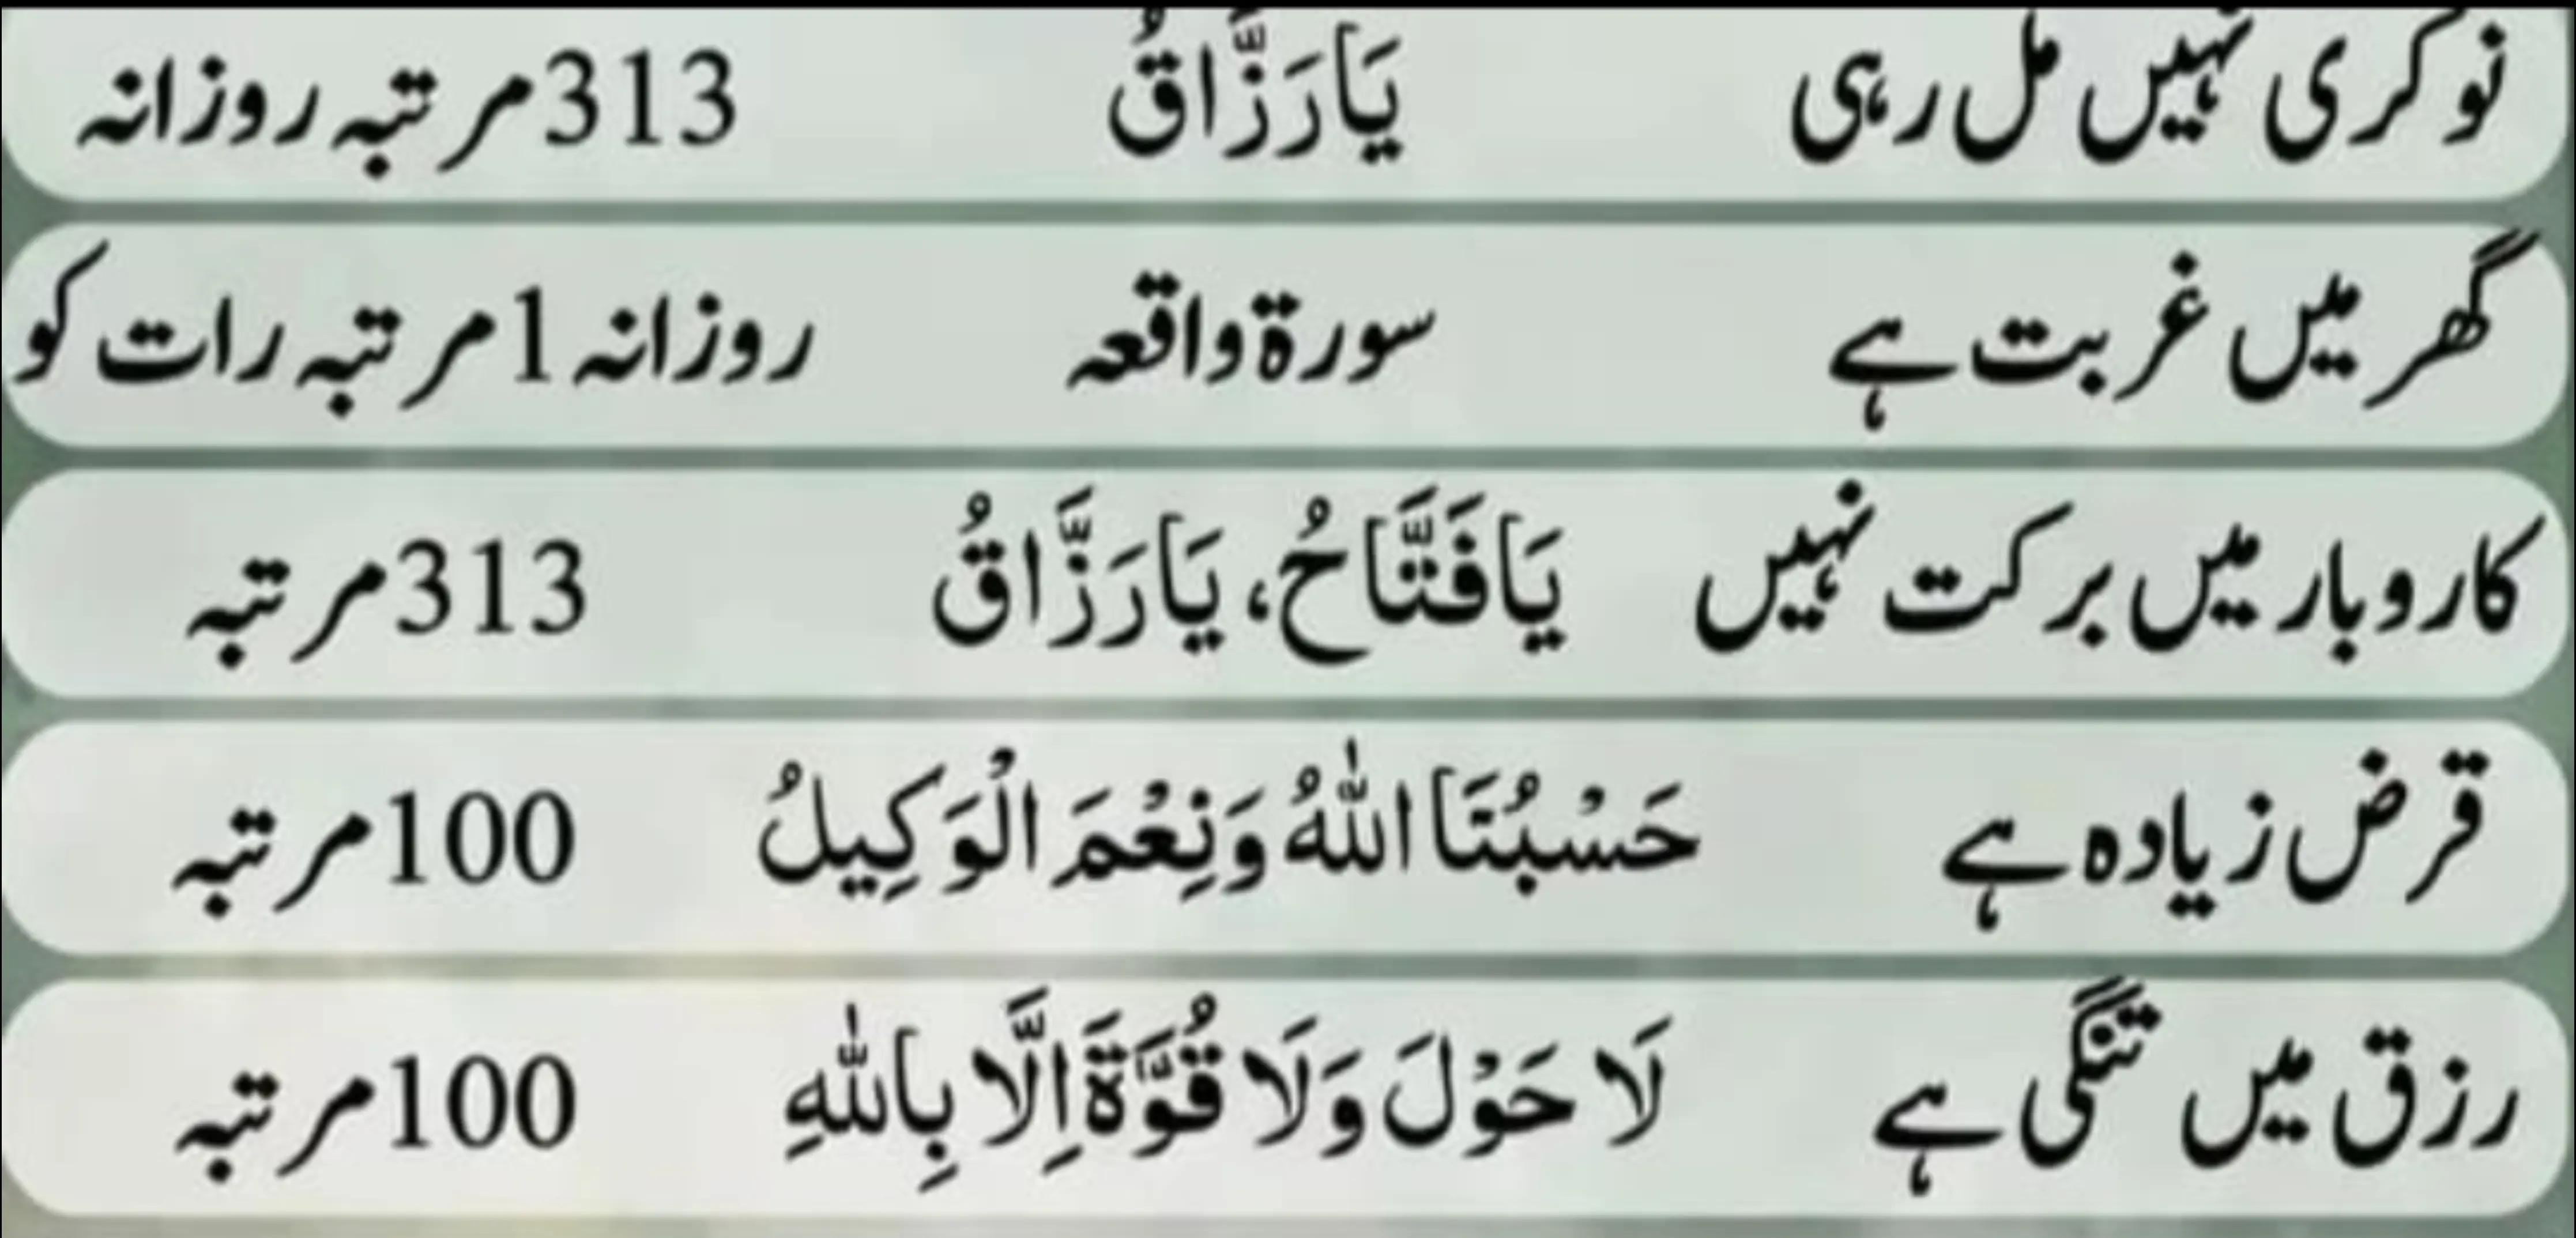 نوکری نہیں مل رہی یَا رَزَّاقُ 313 مرتبہ روزانہ
گھر میں غربت ہے سورۃ واقعہ روزانہ 1 مرتبہ رات کو
کاروبار میں برکت نہیں یَا فَتَّاحُ، یَا رَزَّاقُ 313 مرتبہ
قرض زیادہ ہے حَسْبُنَا اللّٰهُ وَنِعْمَ الْوَكِيلُ 100 مرتبہ
رزق میں تنگی ہے لَا حَوْلَ وَلَا قُوَّةَ اِلَّا بِاللّٰهِ 100 مرتبہ